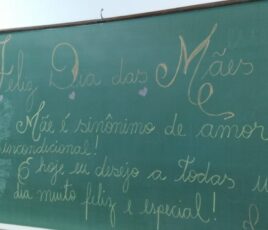 Feliz Dia das Mães
Mãe é sinônimo de amor
incondicional!
E hoje eu desejo a todas
dia muito feliz e especial!